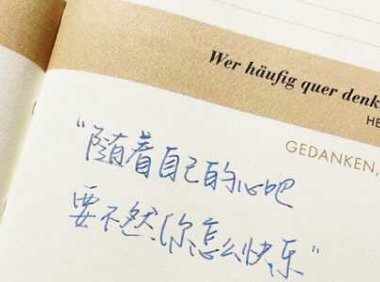 Wer häufig quer denk
HE
GEDANKEN,
“随着自己的心吧
要不然，你怎么快乐”